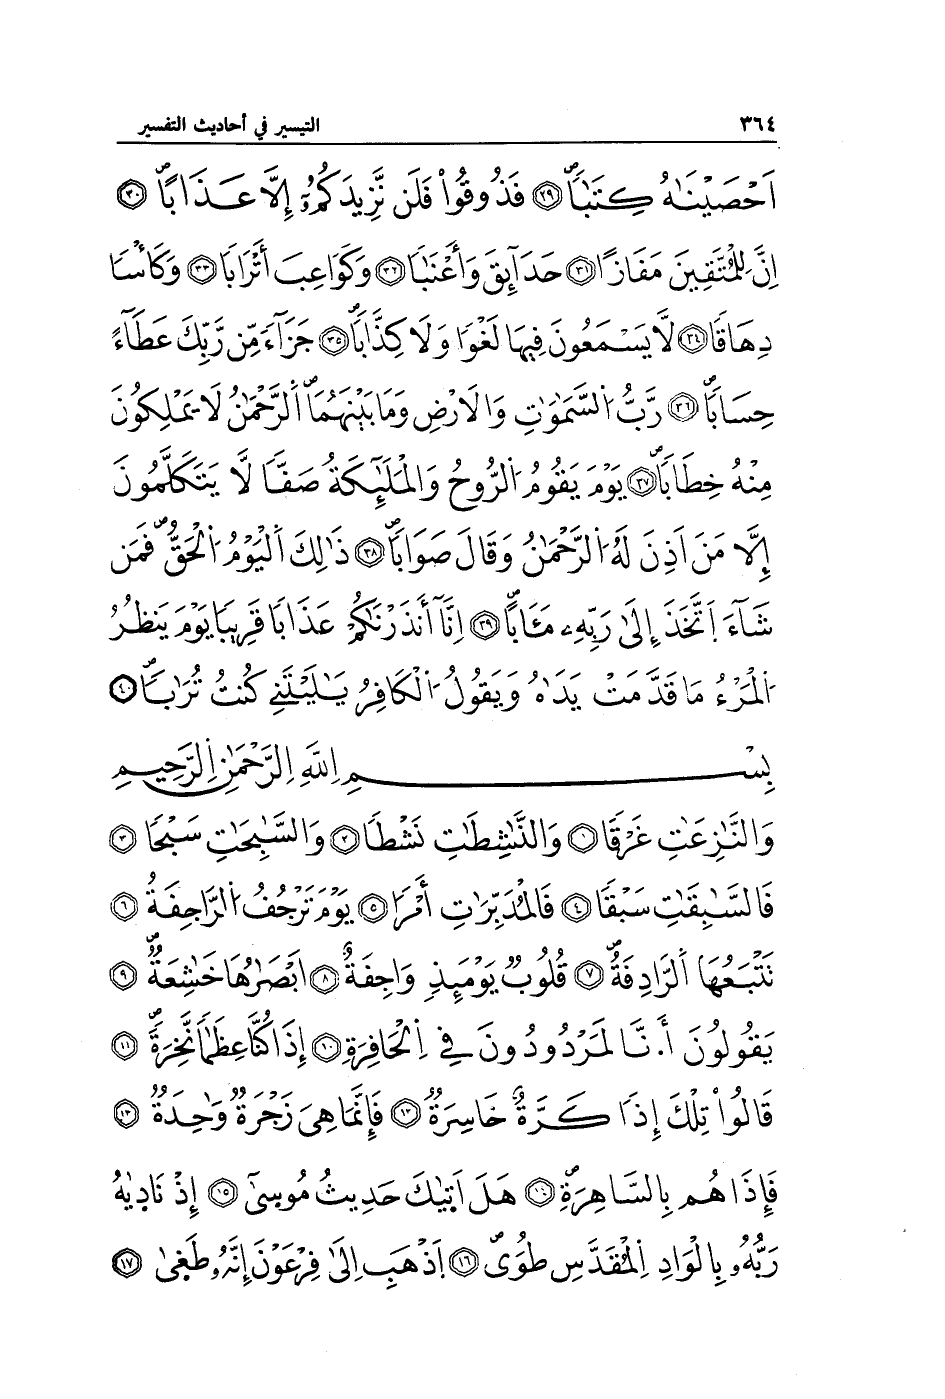 ٣٦٤ التيسير في أحاديث التفسير
اَحْصَيْنَٰهُ كِتَٰباٗۖ ٢٩ فَذُوقُواْ فَلَن نَّزِيدَكُمُۥٓ إِلَّا عَذَاباًۖ ٣٠
اِنَّ لِلْمُتَّقِينَ مَفَازاً ٣١ حَدَآئِقَ وَأَعْنَٰباٗ ٣٢ وَكَوَاعِبَ أَتْرَاباٗ ٣٣ وَكَأْساٗ
دِهَاقاٗ ٣٤ لَّا يَسْمَعُونَ فِيهَا لَغْواٗ وَلَا كِذَّاباٗۖ ٣٥ جَزَآءٗ مِّن رَّبِّكَ عَطَآءً
حِسَاباٗۖ ٣٦ رَّبُّ اُلسَّمَٰوَٰتِ وَالَارْضِ وَمَا بَيْنَهُمَاۖ اَلرَّحْمَٰنُ لَا يَمْلِكُونَ
مِنْهُ خِطَاباٗۖ ٣٧ يَوْمَ يَقُومُ اُلرُّوحُ وَالْمَلَٰٓئِكَةُ صَفّاٗ لَّا يَتَكَلَّمُونَ
إِلَّا مَنَ اَذِنَ لَهُ اُلرَّحْمَٰنُ وَقَالَ صَوَاباٗۖ ٣٨ ذَٰلِكَ اَلْيَوْمُ اُلْحَقُّۖ فَمَن
شَآءَ اَتَّخَذَ إِلَىٰ رَبِّهِۦ مَـَٔاباًۖ ٣٩ اِنَّآ أَنذَرْنَٰكُمْ عَذَاباٗ قَرِيباٗ يَوْمَ يَنظُرُ
اُلْمَرْءُ مَا قَدَّمَتْ يَدَاهُ وَيَقُولُ اُلْكَافِرُ يَٰلَيْتَنِے كُنتُ تُرَٰباٗۖ ٤٠
بِسْمِ اِللَّهِ اِلرَّحْمَٰنِ اِلرَّحِيمِ
وَالنَّٰزِعَٰتِ غَرْقاٗ ١ وَالنَّٰشِطَٰتِ نَشْطاٗ ٢ وَالسَّٰبِحَٰتِ سَبْحاٗ ٣
فَالسَّٰبِقَٰتِ سَبْقاٗ ٤ فَالْمُدَبِّرَٰتِ أَمْراٗ ٥ يَوْمَ تَرْجُفُ اُلرَّاجِفَةُ ٦
تَتْبَعُهَا اَلرَّادِفَةُۖ ٧ قُلُوبٞ يَوْمَئِذٖ وَاجِفَةٌ ٨ اَبْصَٰرُهَا خَٰشِعَةٞۖ ٩
يَقُولُونَ أَ.نَّا لَمَرْدُودُونَ فِے اِلْحَافِرَةِ ١٠ إِذَا كُنَّا عِظَٰماٗ نَّخِرَةٗۖ ١١
قَالُواْ تِلْكَ إِذاٗ كَرَّةٌ خَاسِرَةٞ ١٢ فَإِنَّمَا هِيَ زَجْرَةٞ وَٰحِدَةٞ ١٣
فَإِذَا هُم بِالسَّاهِرَةِۖ ١٤ هَلَ اَتٜيٰكَ حَدِيثُ مُوسٜيٰٓ ١٥ إِذْ نَادٜيٰهُ
رَبُّهُۥ بِالْوَادِ اِلْمُقَدَّسِ طُوَىۖ ١٦ اَذْهَبِ اِلَىٰ فِرْعَوْنَ إِنَّهُۥ طَغٜيٰ ١٧